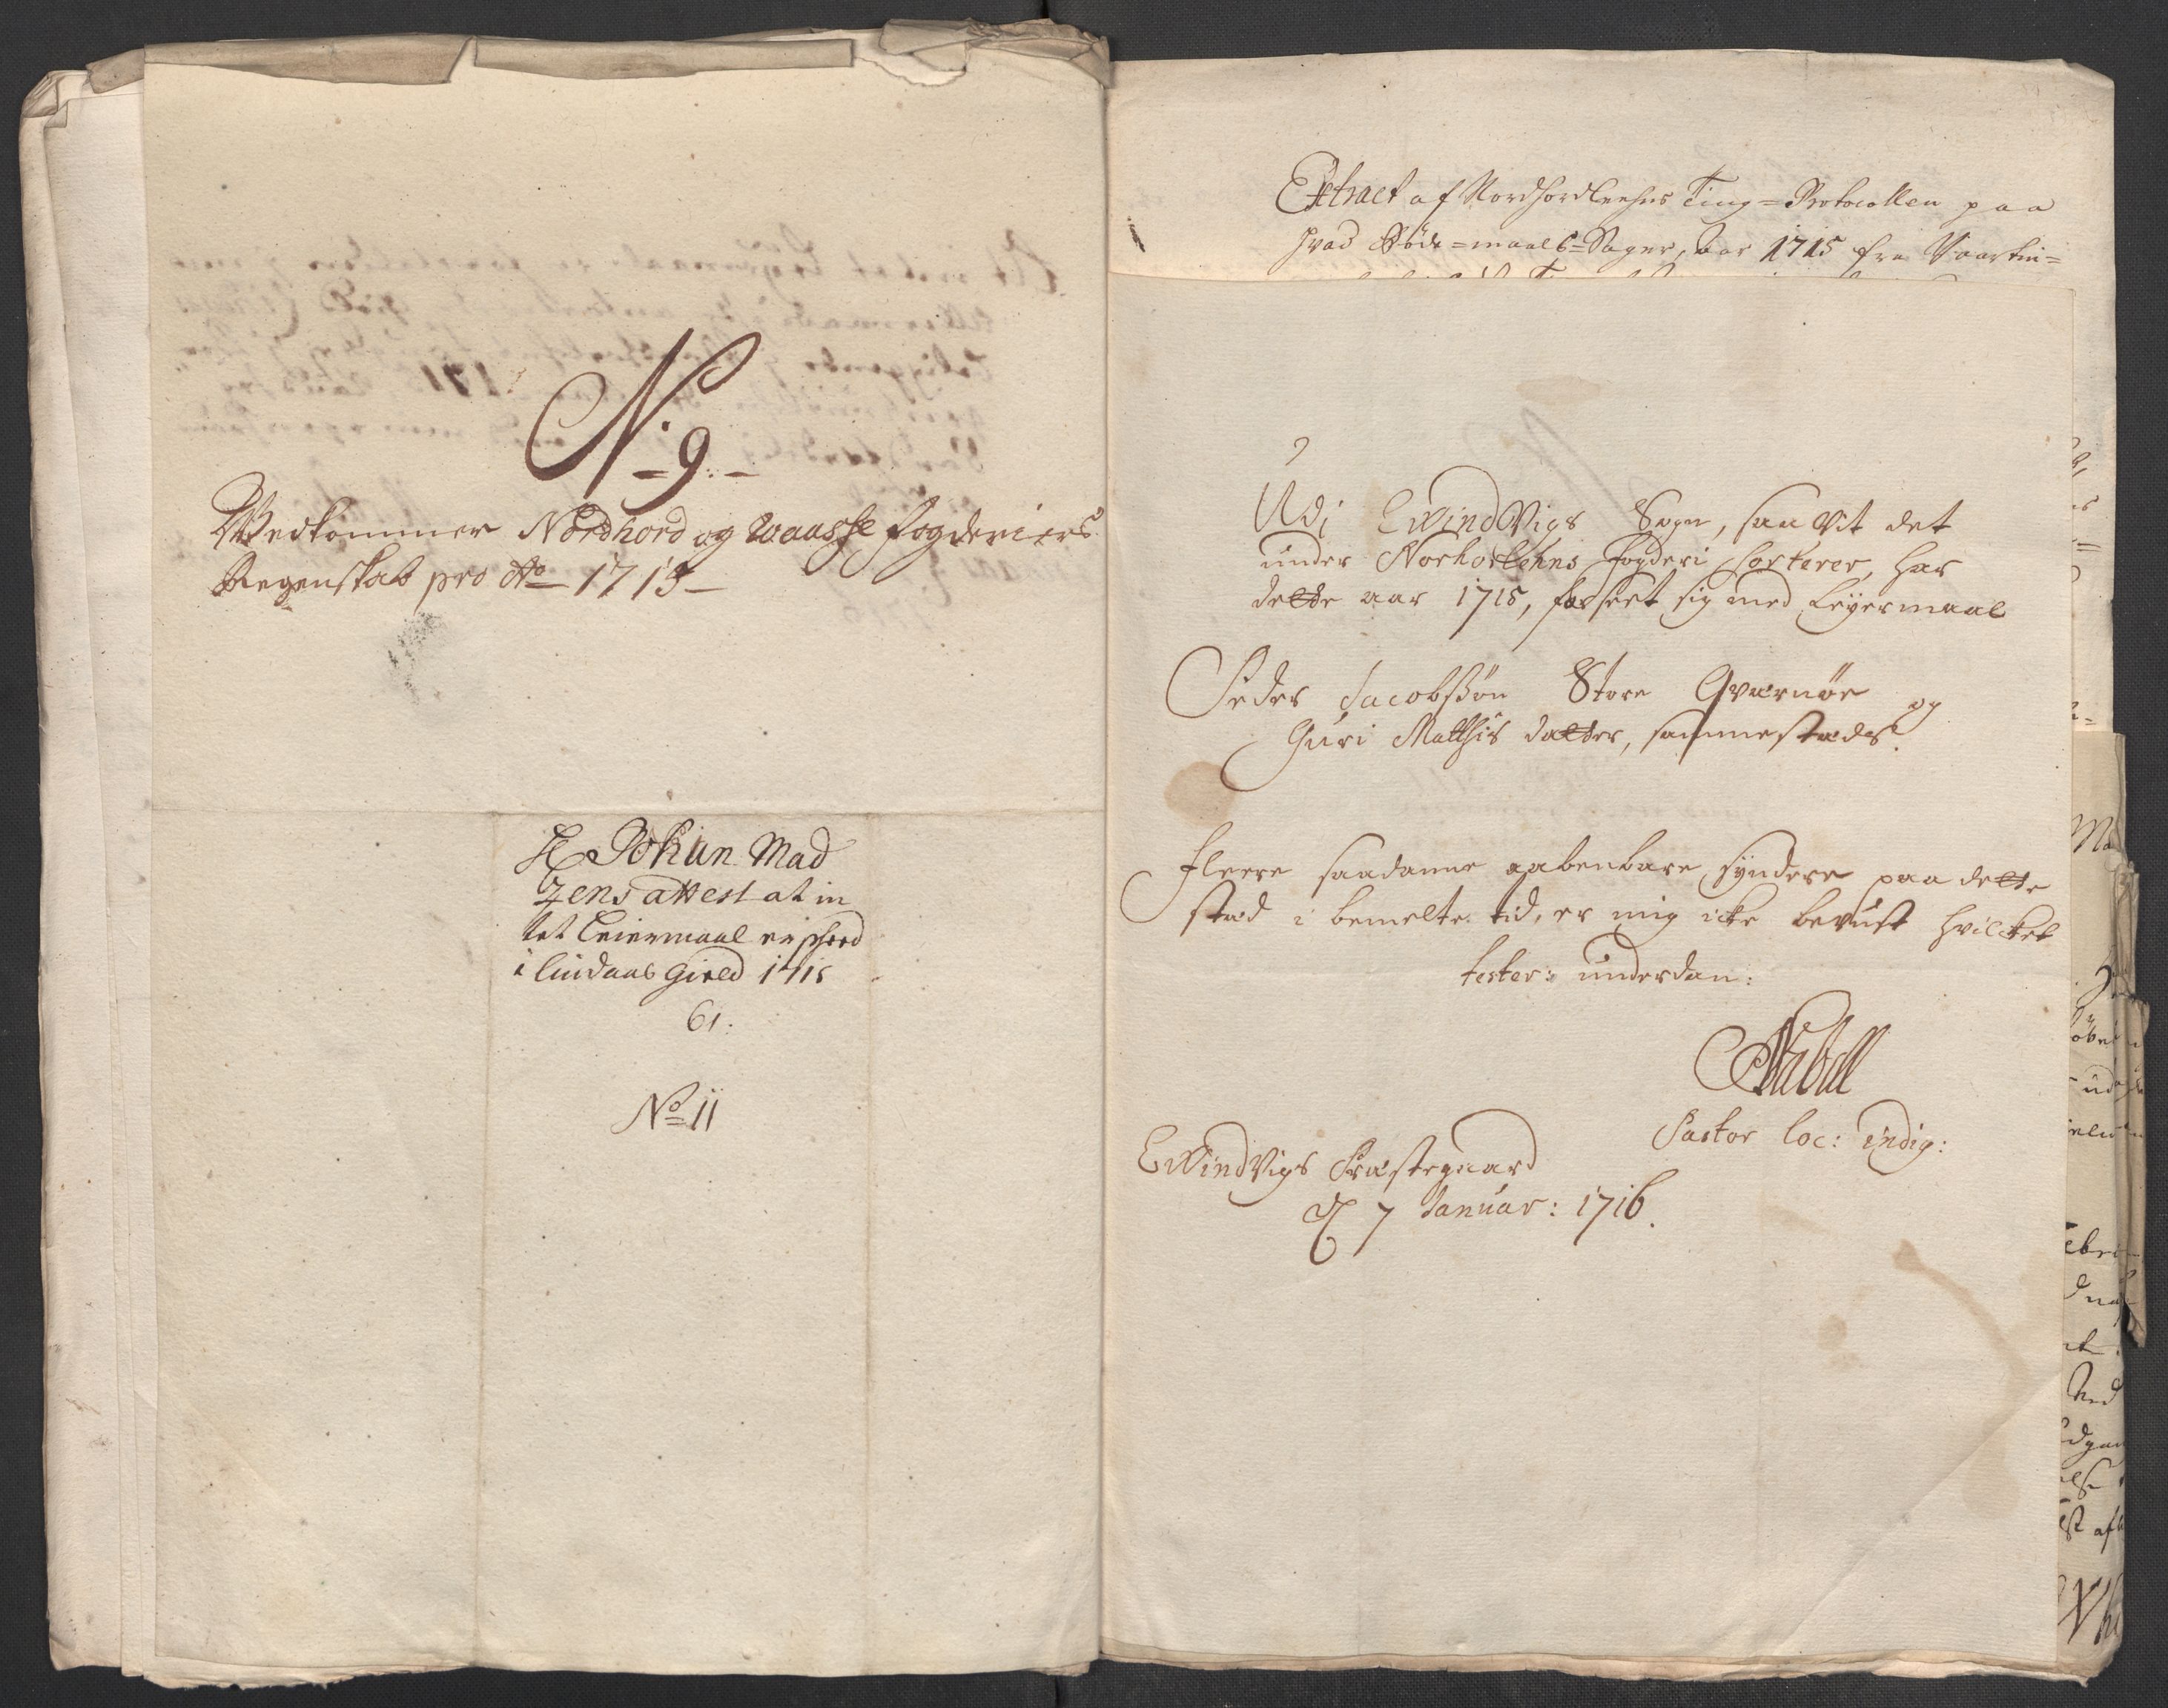 N. 9.
Vedkommer Nordhord og Waasse fogderiers
Regenskab pro Ao 1715
Hr Johan Mad
zens attest at in
tet Leiermaal er skeed
i Lindaas Gield 1715
61.
No 11
Extract af Nordhordlehns Ting-Protocollen paa
hvad Böde-maals-Sager, aar 1715 fra Vaartin=
Udj EvindVigs Sogn, saa vit det
under Norhorlehns fogderi sorterer, har
dette aar 1715, forseet sig med Leyermaal
Peder Jacobssøn Store Qvernøe og
Guri Matthis datter, sammestæds.
Fleere saadanne aabenbare syndere paa dette
stæd i bemelte tid, er mig icke bevust hvilcket
tester: underdan:
Pastor loc: indig:
EvindVigs Præstegaard
d 7 Januar: 1716.